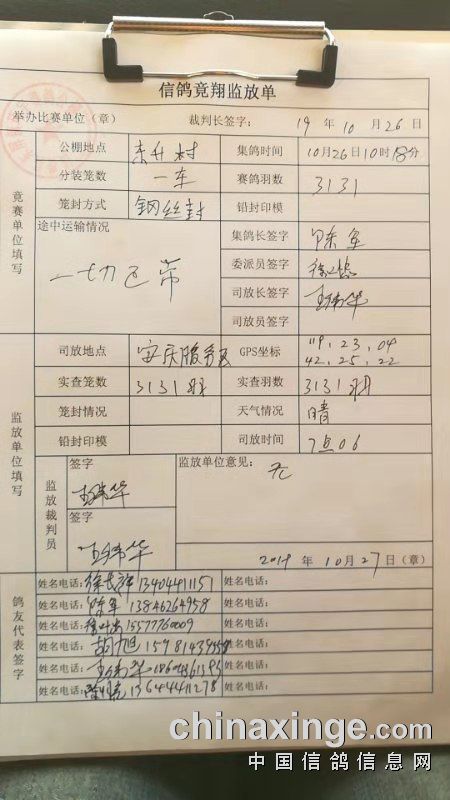 信鸽竟翔监放单
举办比赛单位（章） 裁判长签字： 19 年 10 月 26 日
竟赛单位填写
公棚地点 东升村 集鸽时间 10月26日10时18分
分装笼数 一车 赛鸽羽数 3131
笼封方式 钢丝封 铅封印模
途中运输情况 集鸽长签字 陈军
一切正常 委派员签字
司放长签字
司放员签字
监放单位填写
司放地点 安庆服务区 GPS坐标 119，23，04 42，25，22
实查笼数 3131羽 实查羽数 3131羽
笼封情况 天气情况 晴
铅封印模 司放时间 7点06
监放裁判员 签字 监放单位意见： 无
签字
2019 年 10 月 27 日（章）
鸽友代表签字
姓名电话： 13404411151 姓名电话：
姓名电话： 陈军 13846264958 姓名电话：
姓名电话： 15577760009 姓名电话：
姓名电话： 胡旭 姓名电话：
姓名电话： 姓名电话：
姓名电话： 13644411278 姓名电话：
chinaxinge.com
中国信鸽信息网